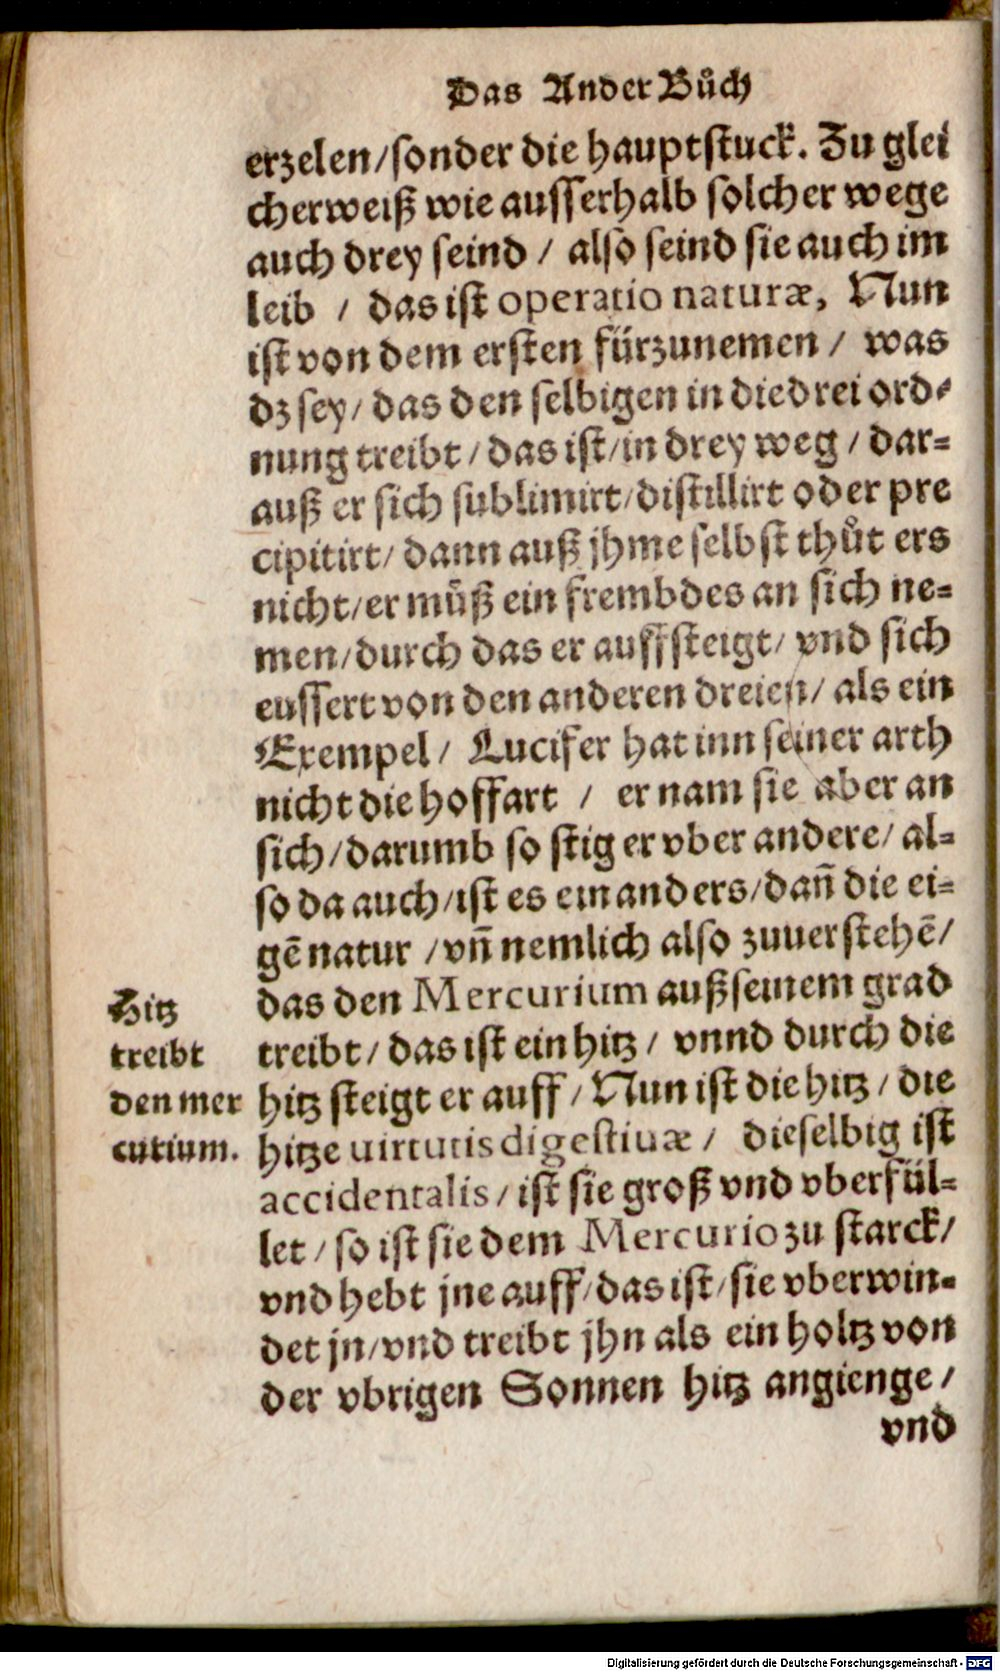 Das Ander Bůch
erzelen/sonder die hauptstuck. Zu glei
cherweiß wie ausserhalb solcher wege
auch drey seind / also seind sie auch im
leib / das ist operatio naturæ, Nun
ist von dem ersten fürzunemen / was
dz sey/ das den selbigen in die drei ord-
nung treibt / das ist/in drey weg / dar-
auß er sich sublimirt/distillirt oder pre
cipitirt/ dann auß jhme selbst thůt ers
nicht/er můß ein frembdes an sich ne-
men/durch das er auffsteigt/ vnd sich
eussert von den anderen dreien/ als ein
Exempel/ Lucifer hat inn seiner arth
nicht die hoffart / er nam sie aber an
sich/darumb so stig er vber andere/ al-
so da auch/ist es ein anders/dañ die ei-
gẽ natur /vñ nemlich also zuuerstehẽ/
das den Mercurium auß seinem grad
treibt/ das ist ein hitz/ vnnd durch die
hitz steigt er auff / Nun ist die hitz / die
hitze uirtutis digestiuæ / dieselbig ist
accidentalis/ ist sie groß vnd vberfül-
let / so ist sie dem Mercurio zu starck/
vnd hebt jne auff/das ist/sie vberwin-
det jn/vnd treibt jhn als ein holtz von
der vbrigen Sonnen hitz angienge/
vnd
Hitz
treibt
den mer
curium.
Digitalisierung gefördert durch die Deutsche Forschungsgemeinschaft - DFG